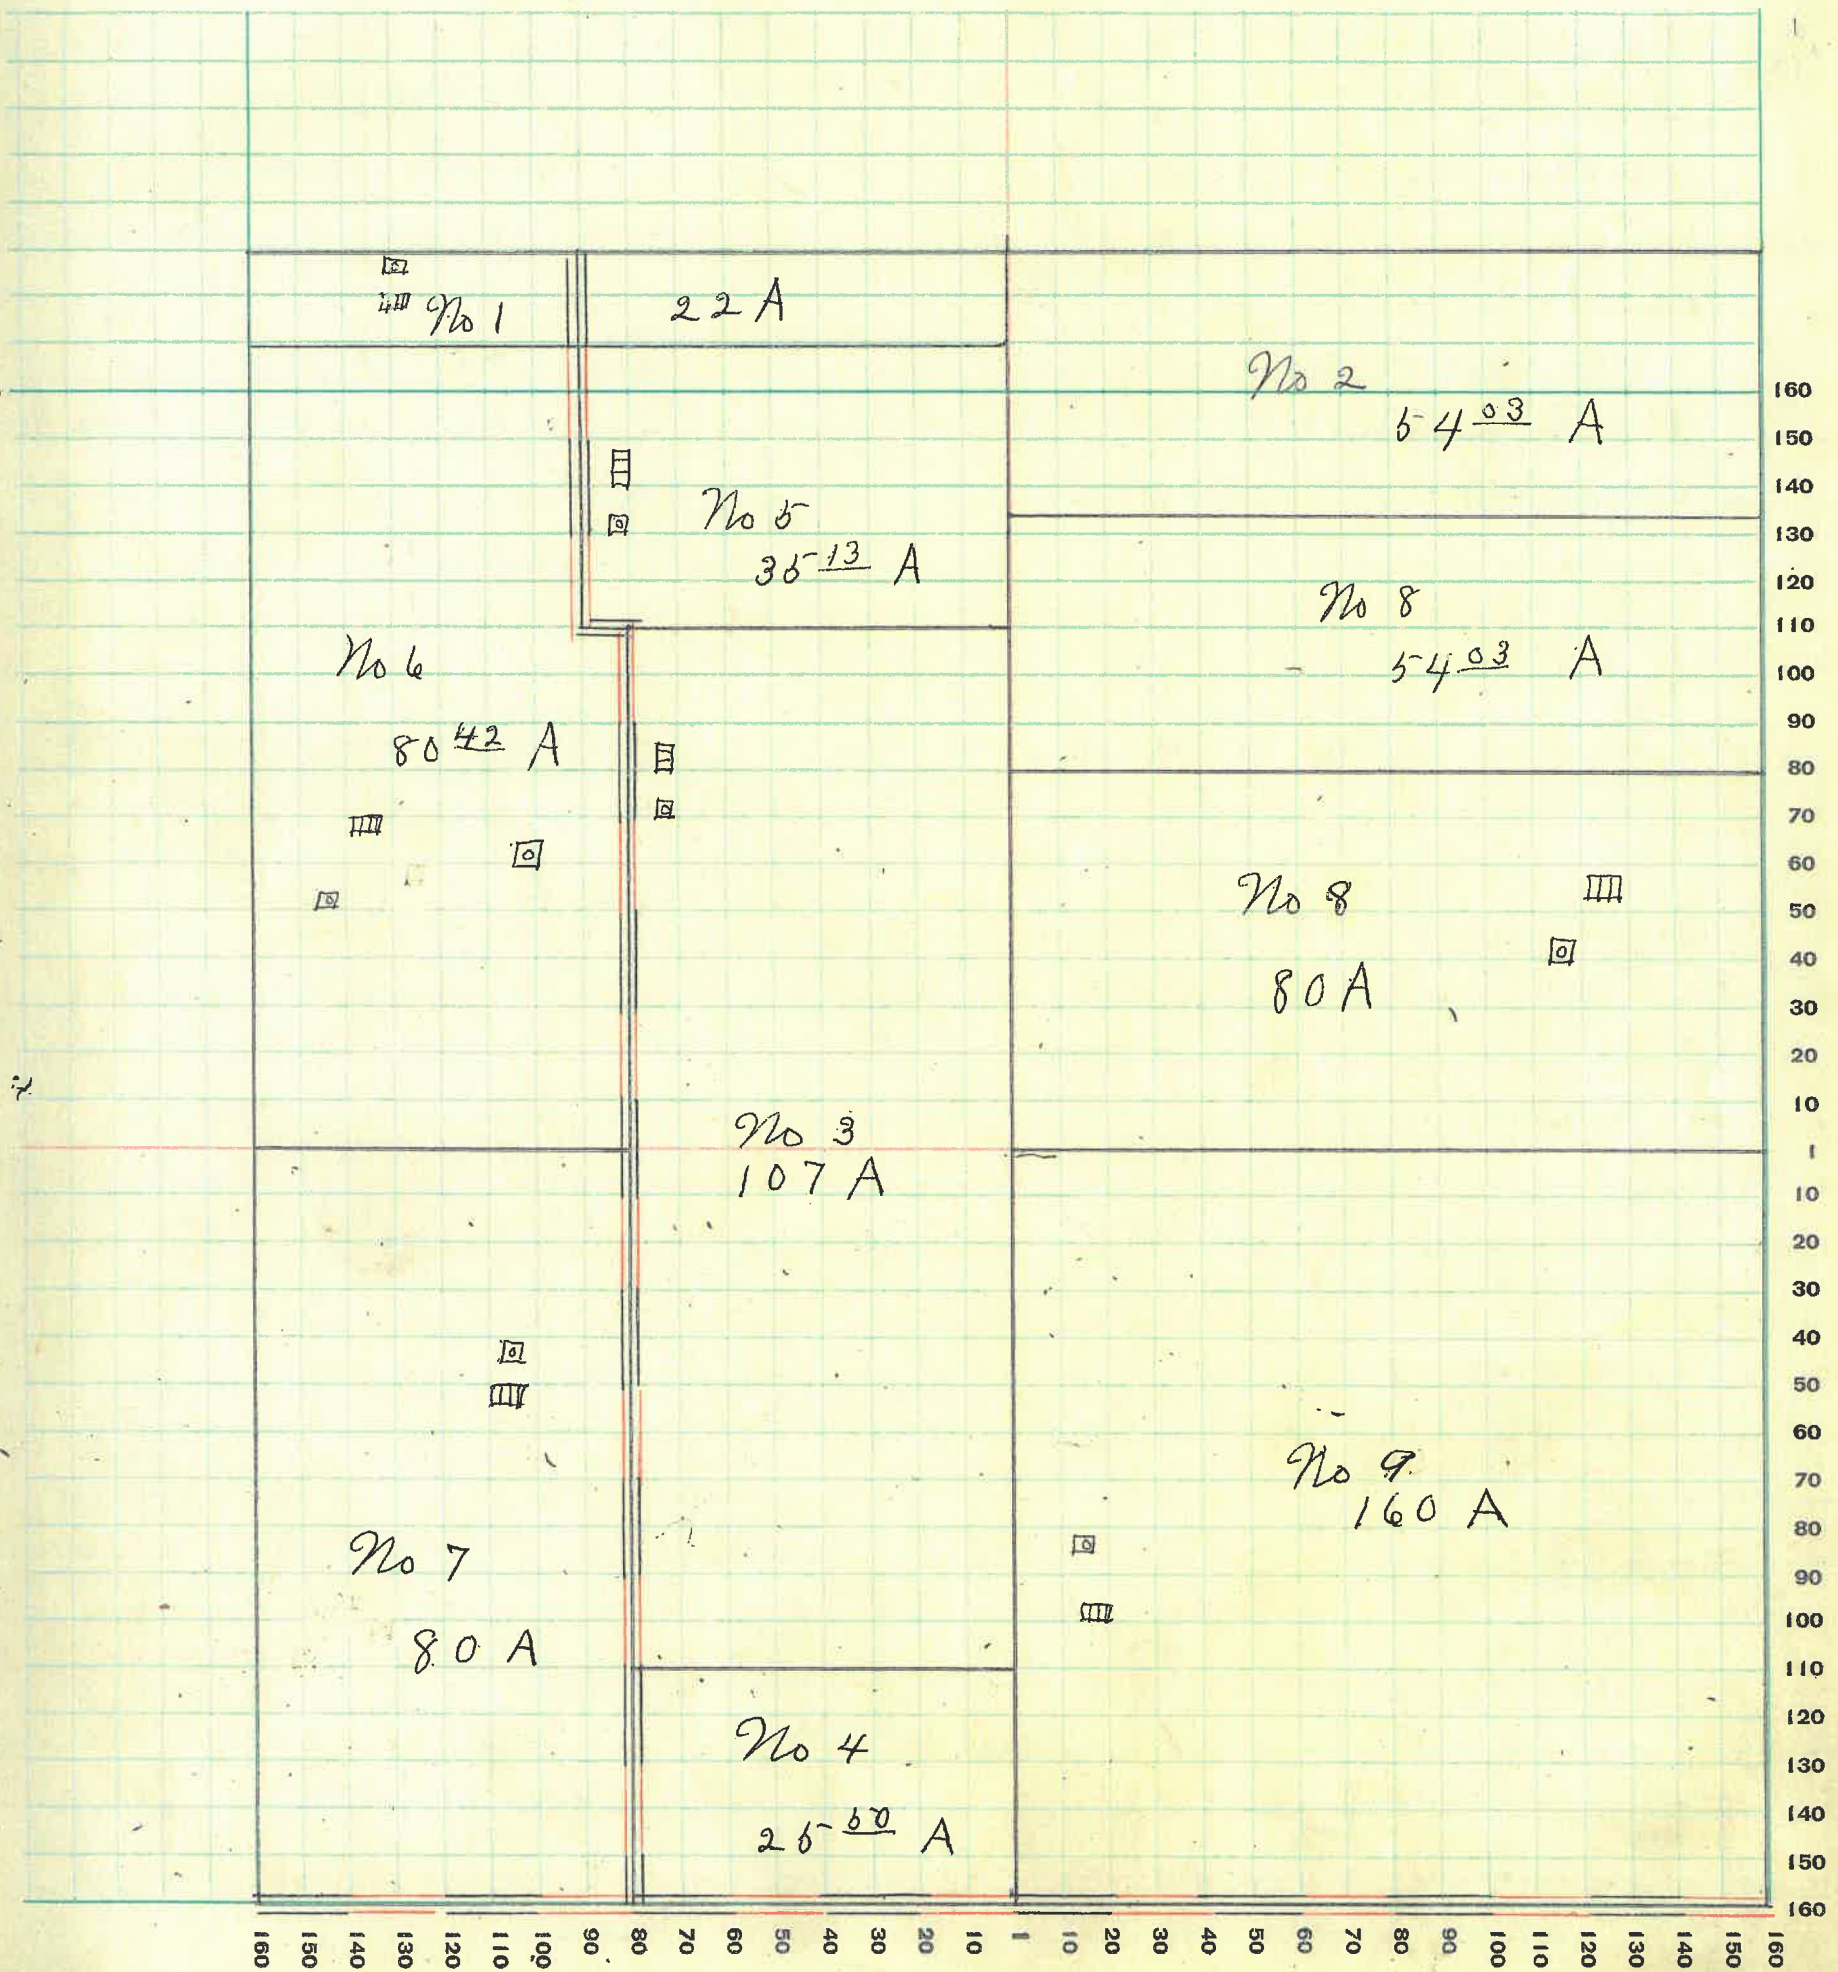 No 1
22 A
No 2
54 03 A
No 5
35 13 A
No 8
54 03 A
No 6
80 42 A
No 8
80 A
No 3
107 A
No 9
160 A
No 7
80 A
No 4
25 50 A
160
150
140
130
120
110
100
90
80
70
60
50
40
30
20
10
1
10
20
30
40
50
60
70
80
90
100
110
120
130
140
150
160
160 150 140 130 120 110 100 90 80 70 60 50 40 30 20 10 1 10 20 30 40 50 60 70 80 90 100 110 120 130 140 150 160